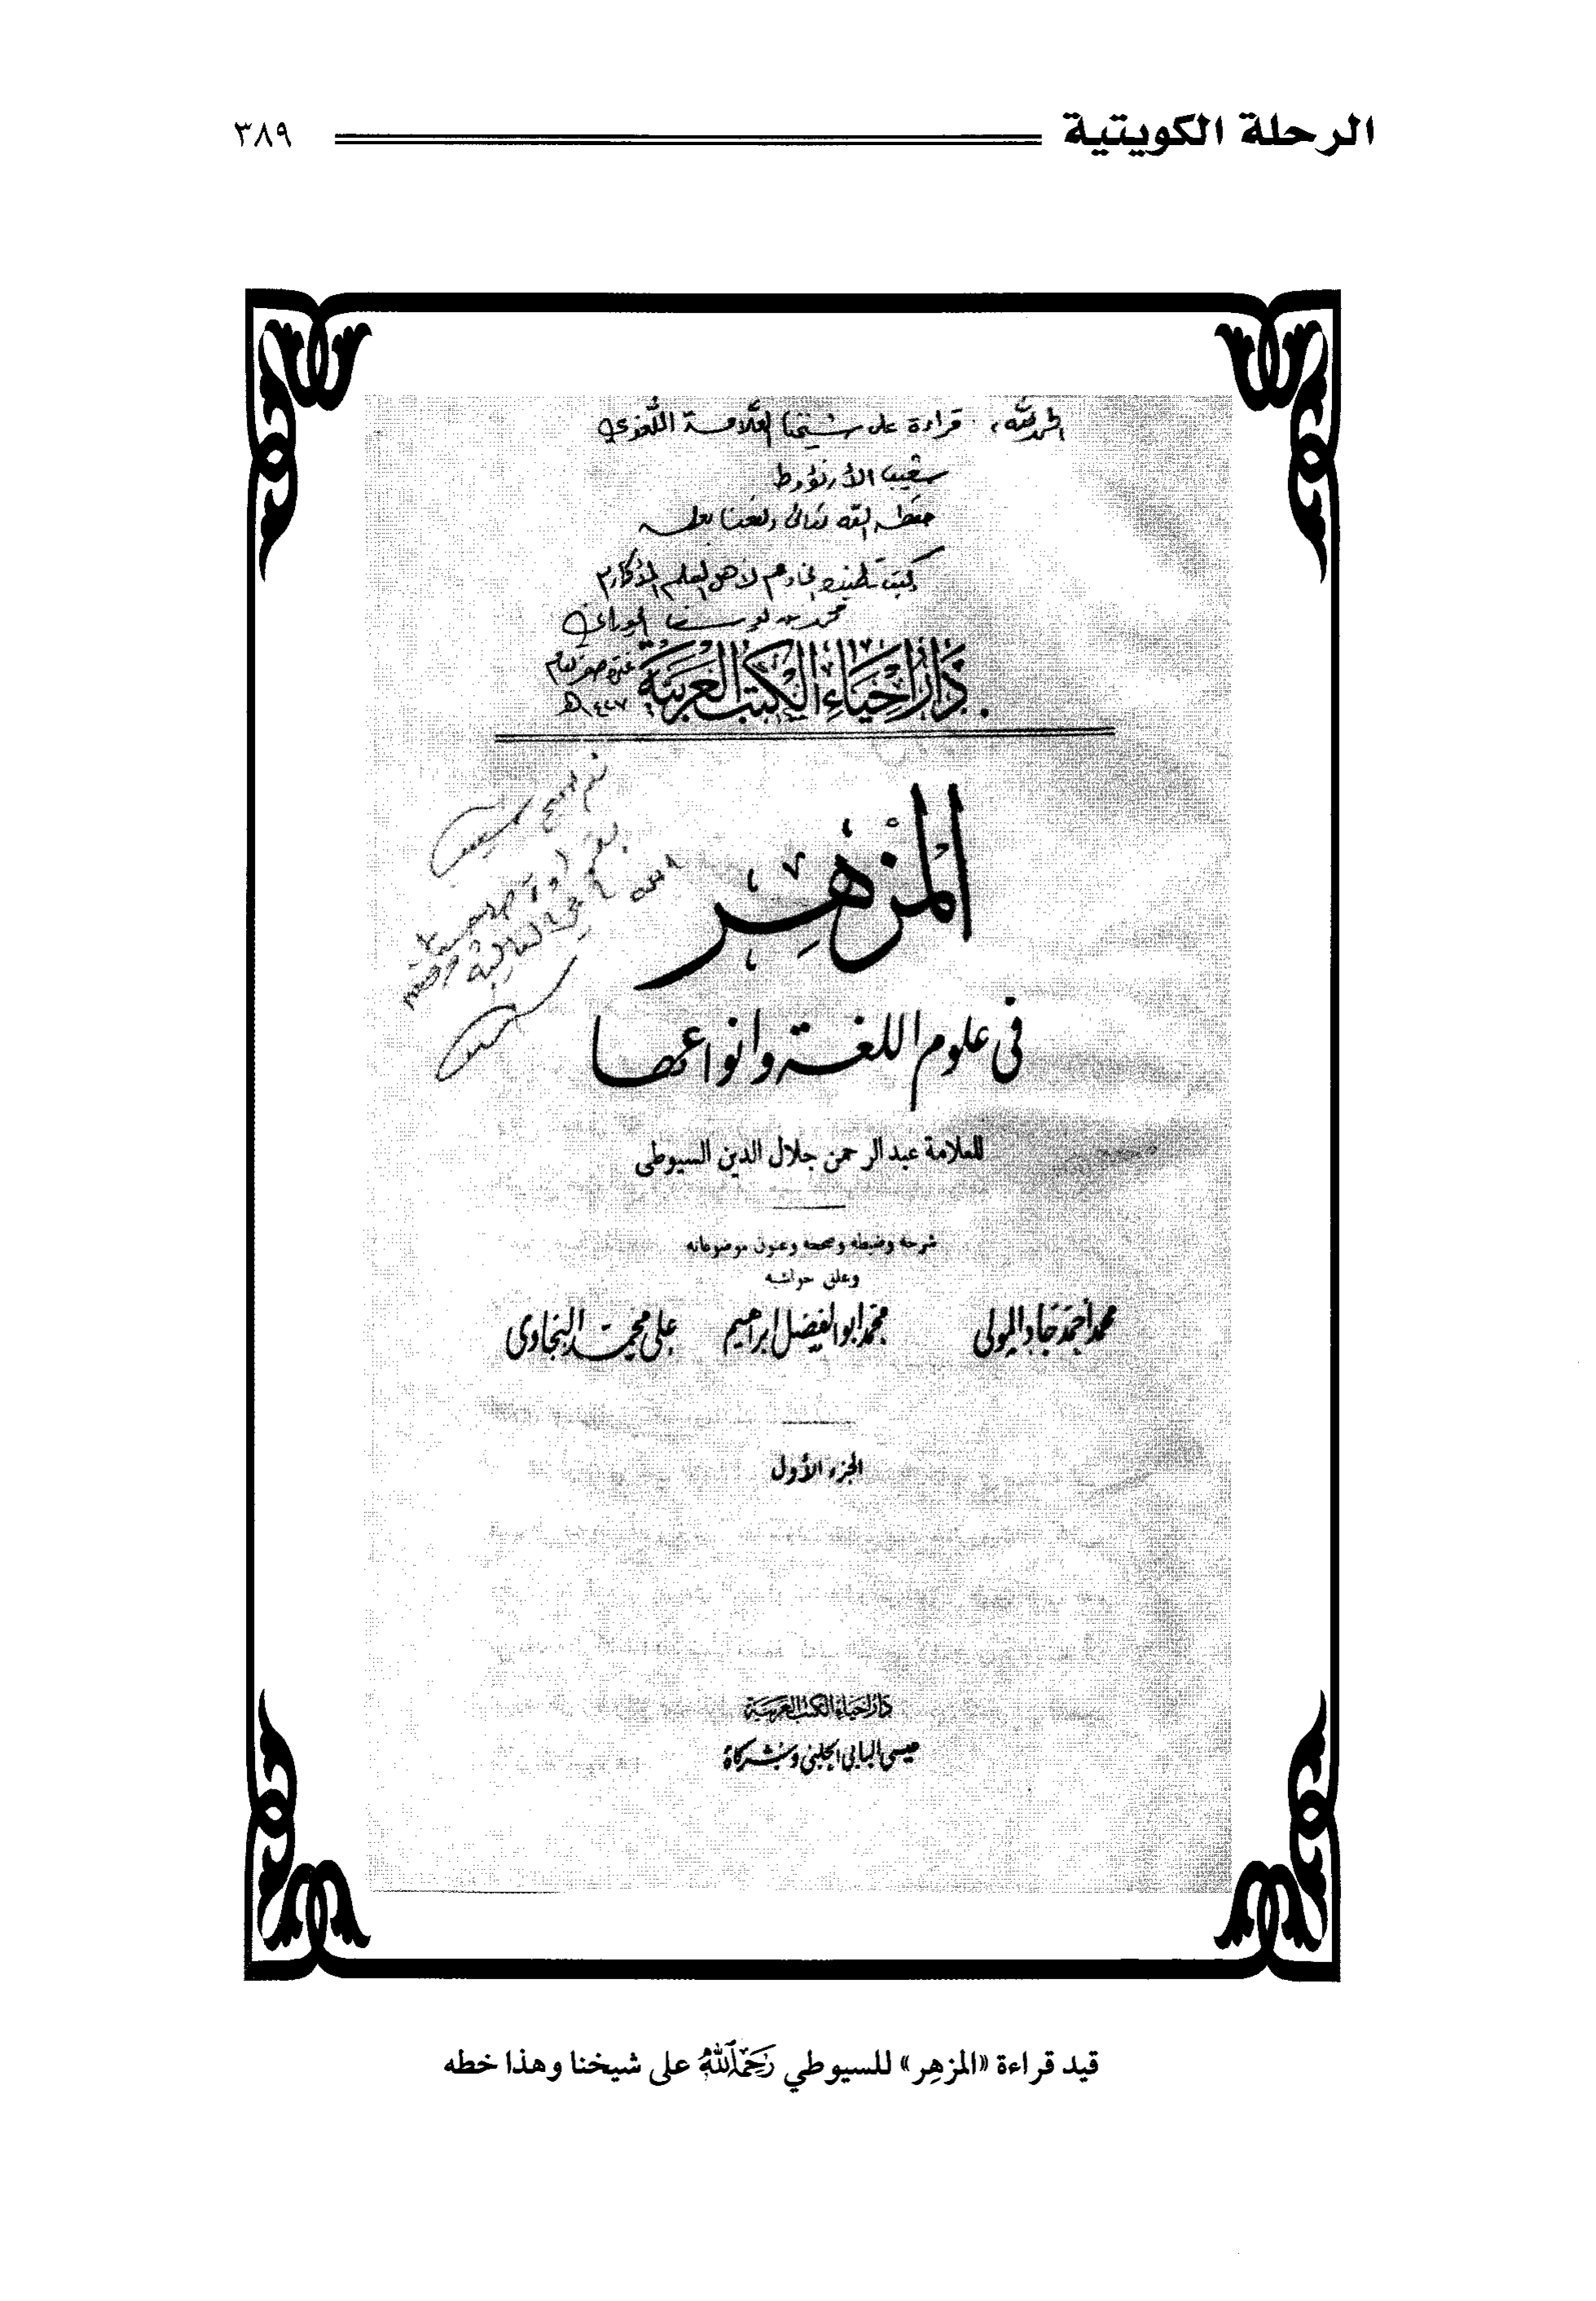 الرحلة الكويتية ٣٨٩
الحمد لله، قراءة على شيخنا العلامة اللغوي
شعيب الأرنؤوط
حفظه الله تعالى ونفعنا بعلمه
كتب تلميذه الخادم لأهل العلم الأكارم
محمد بن يوسف الجوراني
غرة صفر لعام
١٤٢٧هـ
دار إحياء الكتب العربية
المزهر
في علوم اللغة وأنواعها
للعلامة عبد الرحمن جلال الدين السيوطى
شرحه وضبطه وصححه وعنون موضوعاته
وعلق حواشيه
محمد أحمد جاد المولى محمد أبو الفضل إبراهيم على محمد البجاوى
الجزء الأول
دار إحياء الكتب العربية
عيسى البابى الحلبى وشركاه
قيد قراءة «المزهِر» للسيوطي رَحِمَهُ ٱللَّهُ على شيخنا وهذا خطه